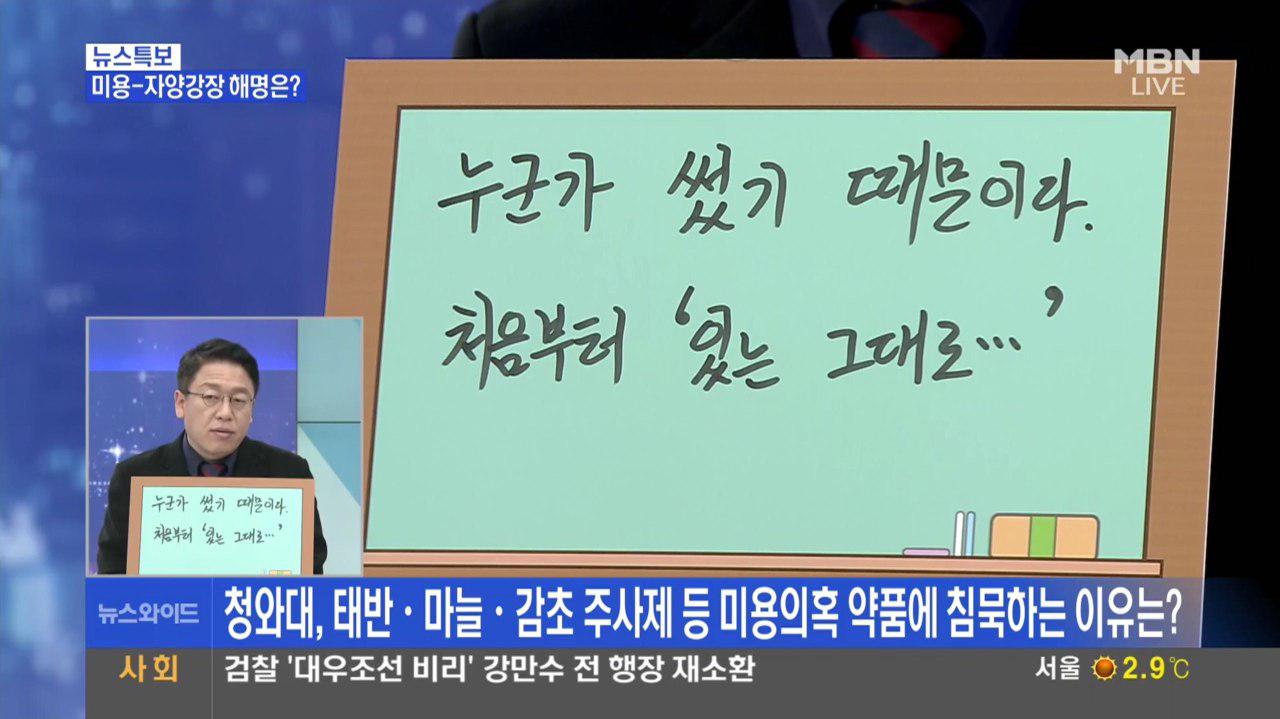 뉴스특보
미용-자양강장 해명은?
MBN
LIVE
누군가 썼기 때문이다.
처음부터 '있는 그대로…'
누군가 썼기 때문이다.
처음부터 '있는 그대로…'
뉴스와이드
청와대, 태반·마늘·감초 주사제 등 미용의혹 약품에 침묵하는 이유는?
사회
검찰 '대우조선 비리' 강만수 전 행장 재소환
서울 2.9℃